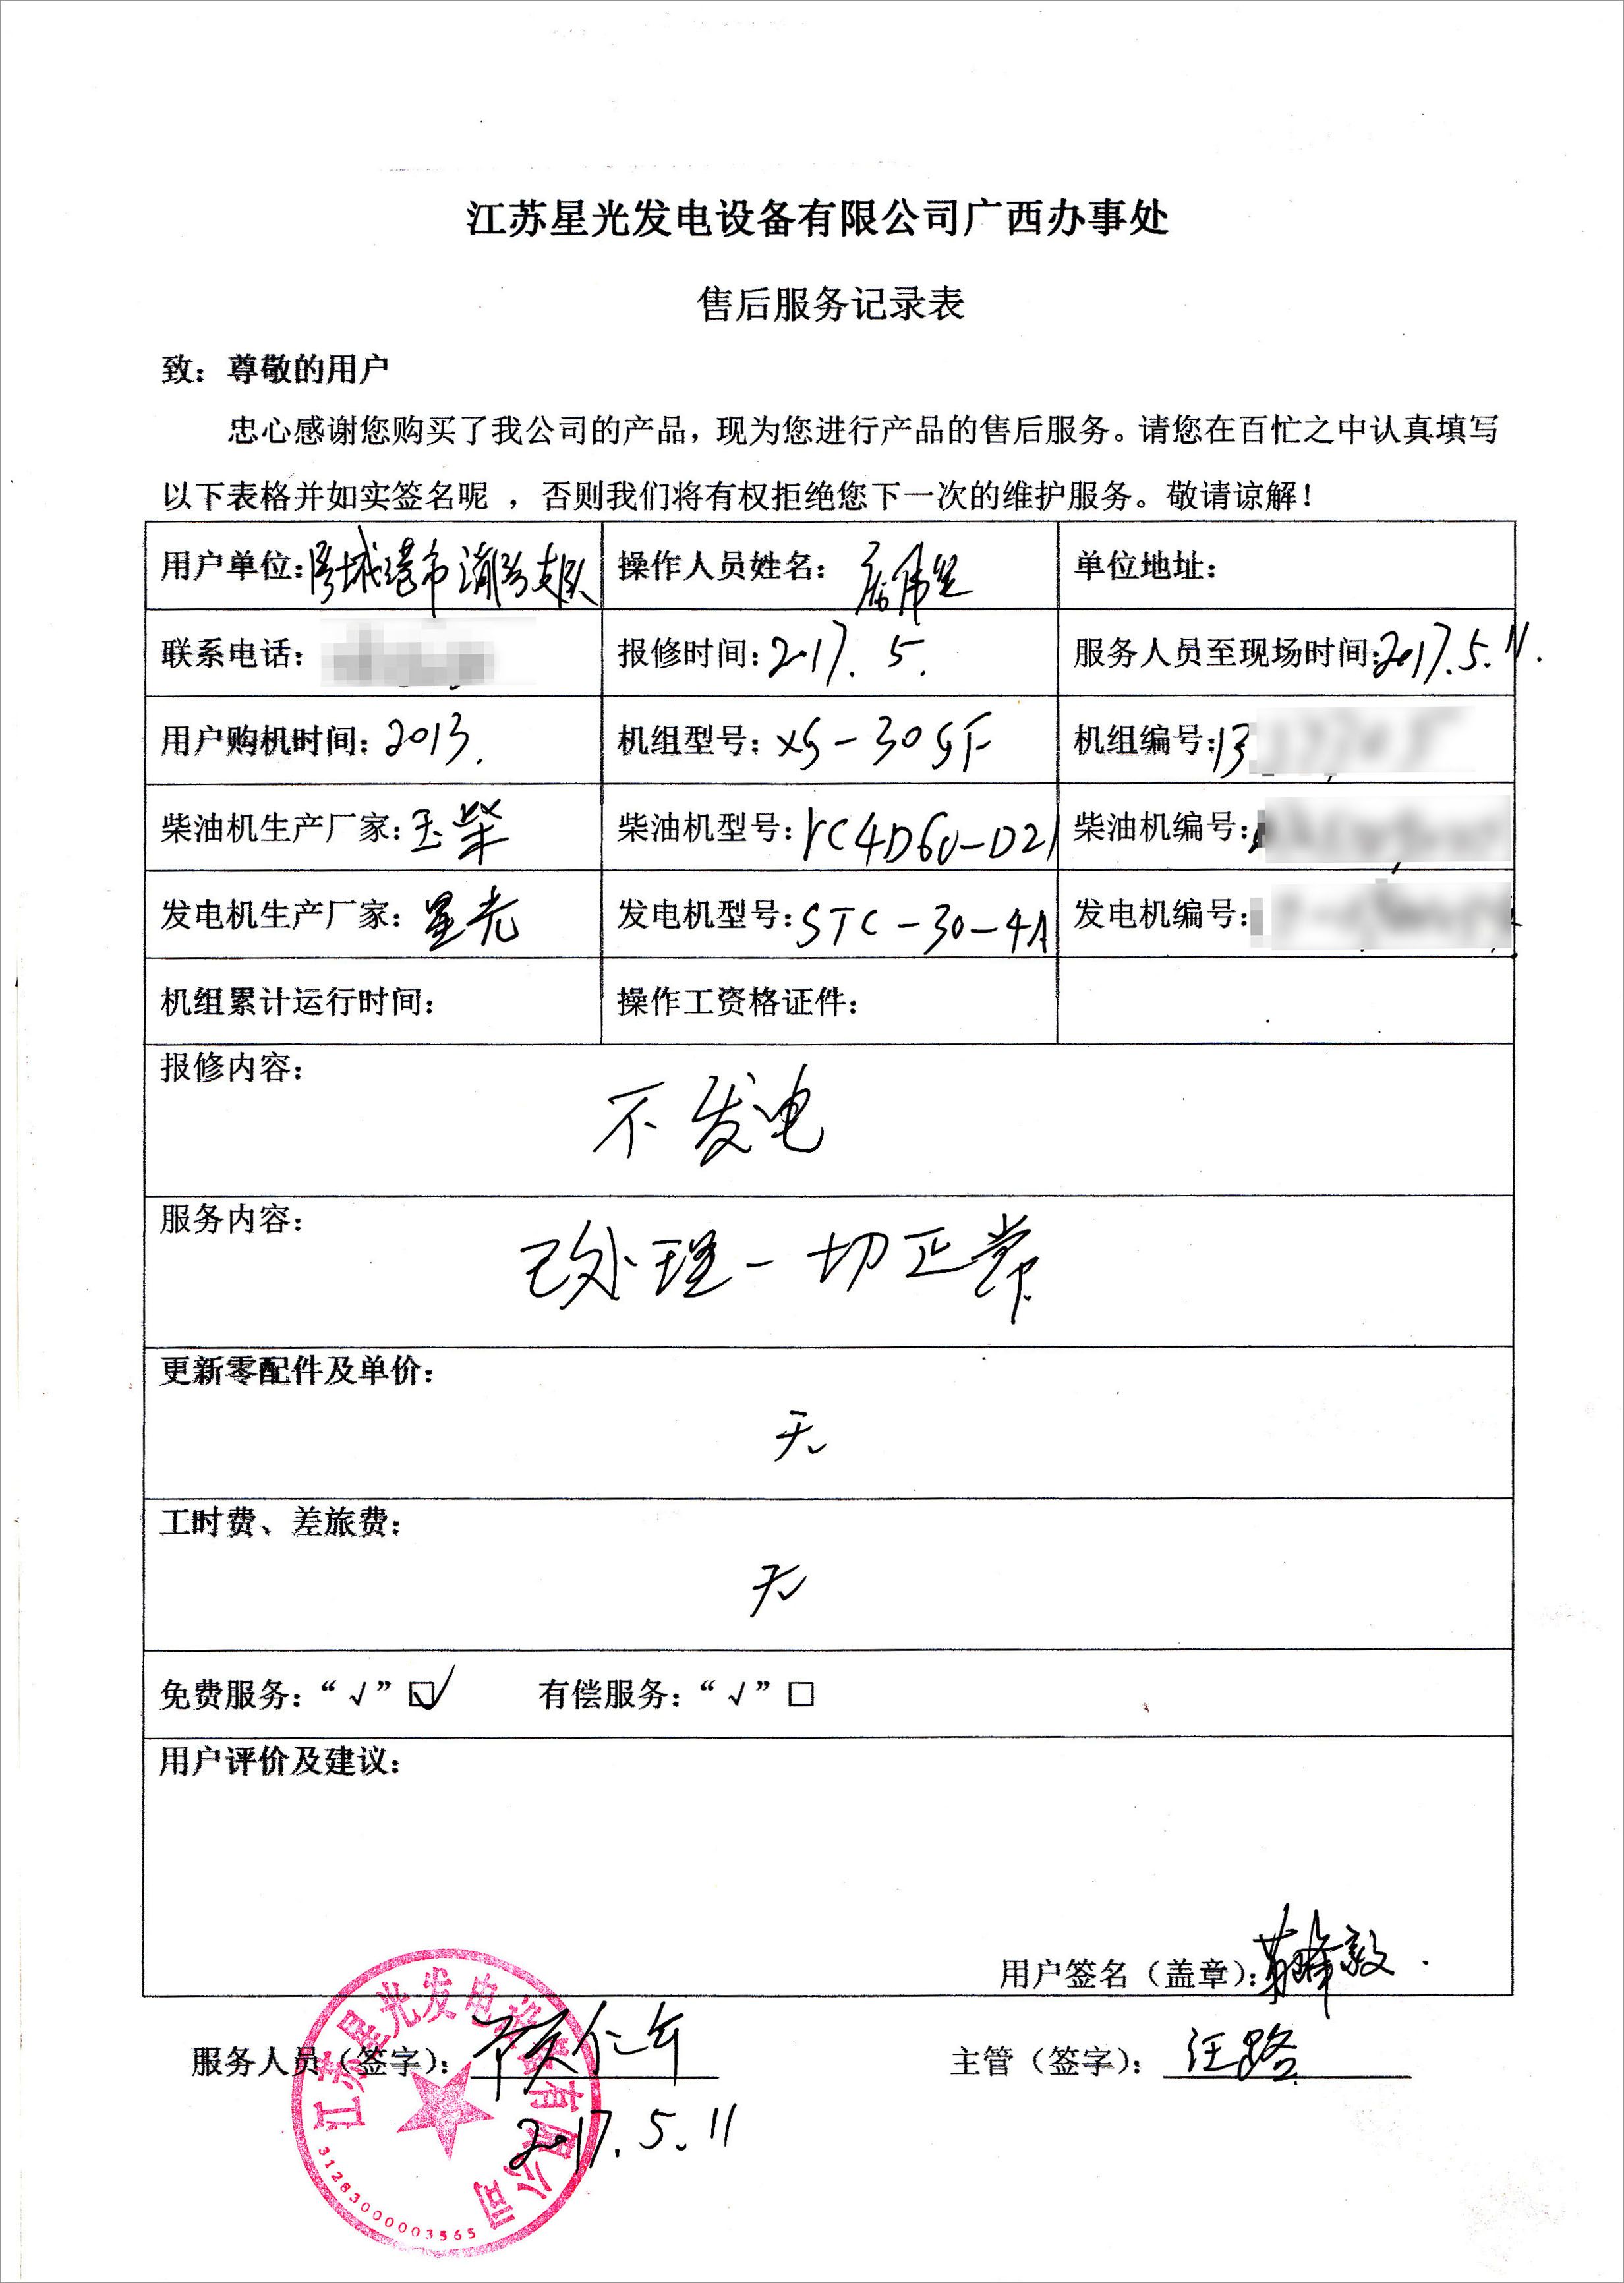 江苏星光发电设备有限公司广西办事处
售后服务记录表
致：尊敬的用户
忠心感谢您购买了我公司的产品，现为您进行产品的售后服务。请您在百忙之中认真填写
以下表格并如实签名呢 ，否则我们将有权拒绝您下一次的维护服务。敬请谅解！
用户单位：防城港市消防支队 操作人员姓名： 单位地址：
联系电话： 报修时间：2017. 5. 服务人员至现场时间：2017.5.11.
用户购机时间：2013. 机组型号：XG-30GF 机组编号：13
柴油机生产厂家：玉柴 柴油机型号：YC4D60-D21 柴油机编号：
发电机生产厂家：星光 发电机型号：STC-30-4A 发电机编号：
机组累计运行时间： 操作工资格证件：
报修内容：
不发电
服务内容：
已处理一切正常
更新零配件及单价：
无
工时费、差旅费：
无
免费服务：“√”☑ 有偿服务：“√”□
用户评价及建议：
用户签名（盖章）：
服务人员（签字）： 主管（签字）：汪路
2017.5.11
江苏星光发电设备有限公司
3128300003565